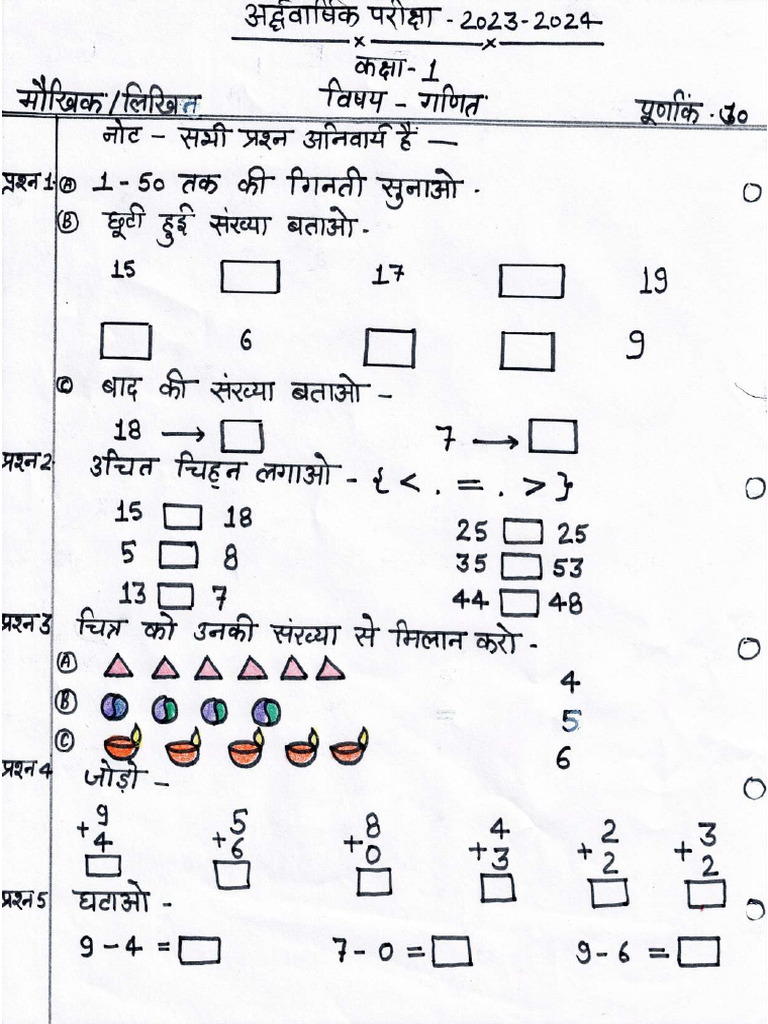 अर्द्धवार्षिक परीक्षा - 2023-2024
कक्षा- 1
मौखिक/लिखित विषय - गणित पूर्णांक .
नोट - सभी प्रश्न अनिवार्य हैं —
प्रश्न 1 (A) 1 - 50 तक की गिनती सुनाओ .
(B) छूटी हुई संख्या बताओ .
15 17 19
6 9
(C) बाद की संख्या बताओ -
18 → 7 →
प्रश्न 2 उचित चिह्न लगाओ - { < . = . > }
15 18 25 25
5 8 35 53
13 7 44 48
प्रश्न 3 चित्र को उनकी संख्या से मिलान करो -
(A) 4
(B) 5
(C) 6
प्रश्न 4 जोड़ो -
9 5 8 4 2 3
+ 4 + 6 + 0 + 3 + 2 + 2
प्रश्न 5 घटाओ -
9 - 4 = 7 - 0 = 9 - 6 =